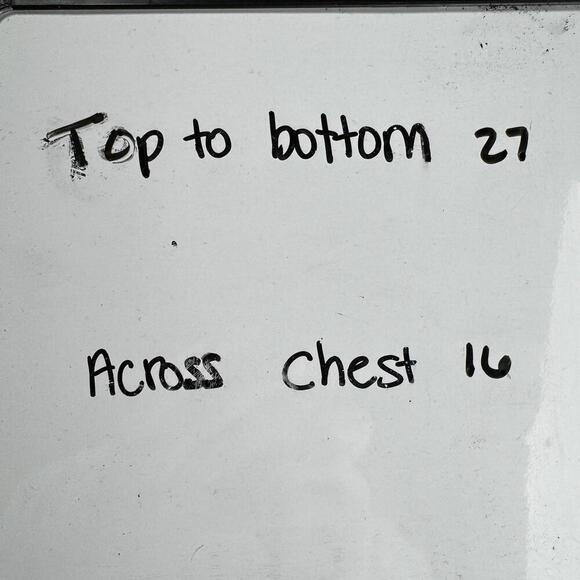 Top to bottom 27
Across chest 16